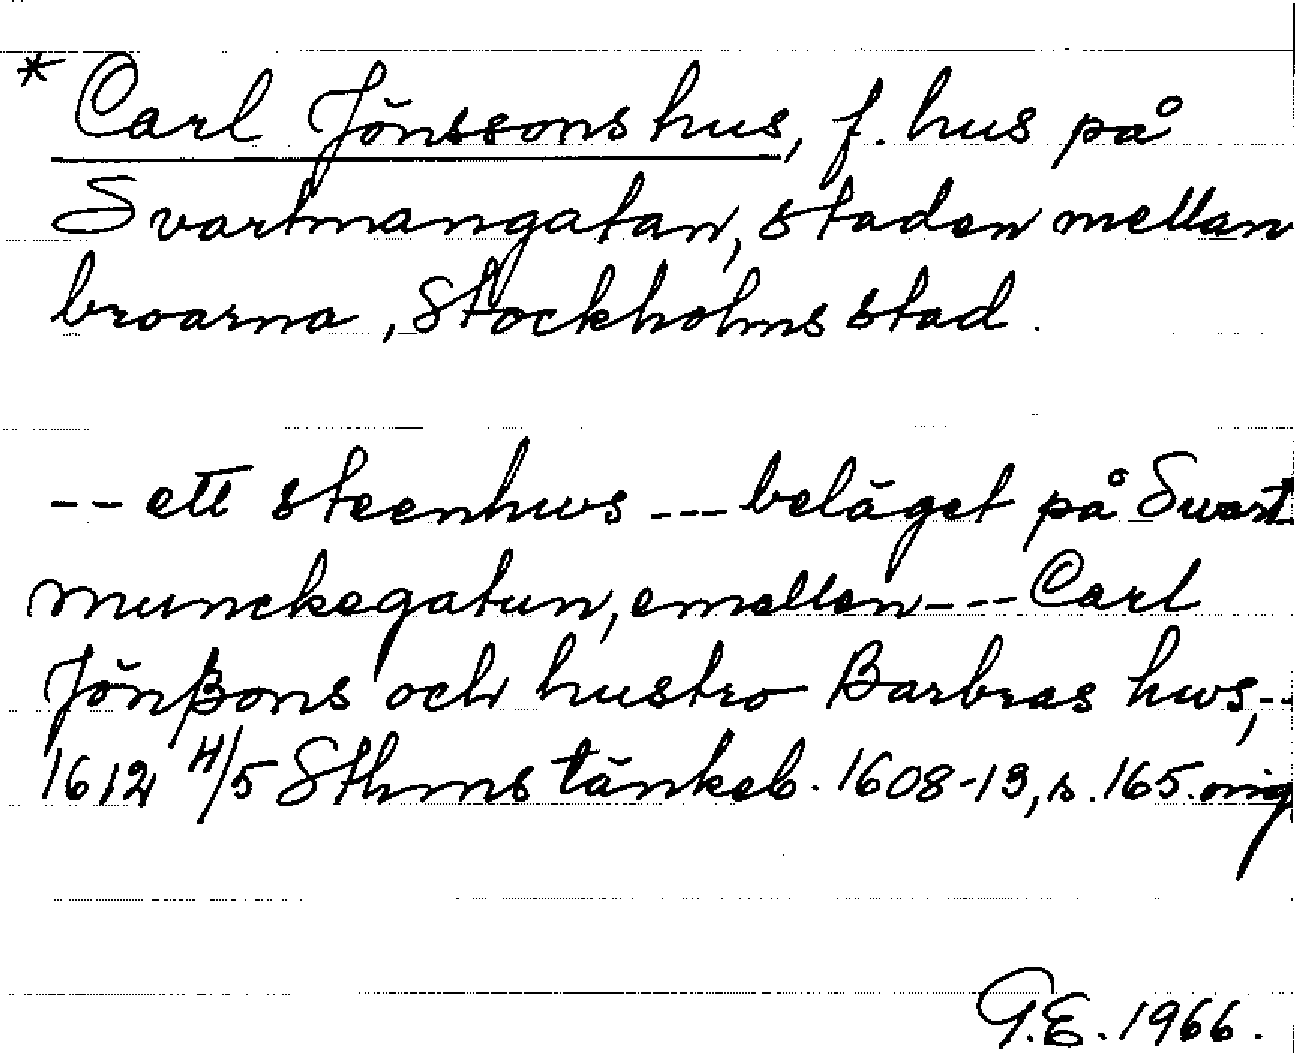 * Carl Jönssons hus, f. hus på
Svartmangatan, staden mellan
broarna, Stockholms stad.
-- ett steenhws --- beläget på Swart
munckegatun, emellen --- Carl
Jönßons och hustro Barbras hws, --
1612 4/5 Sthms tänkeb. 1608-13, s. 165. orig
G.E. 1966.